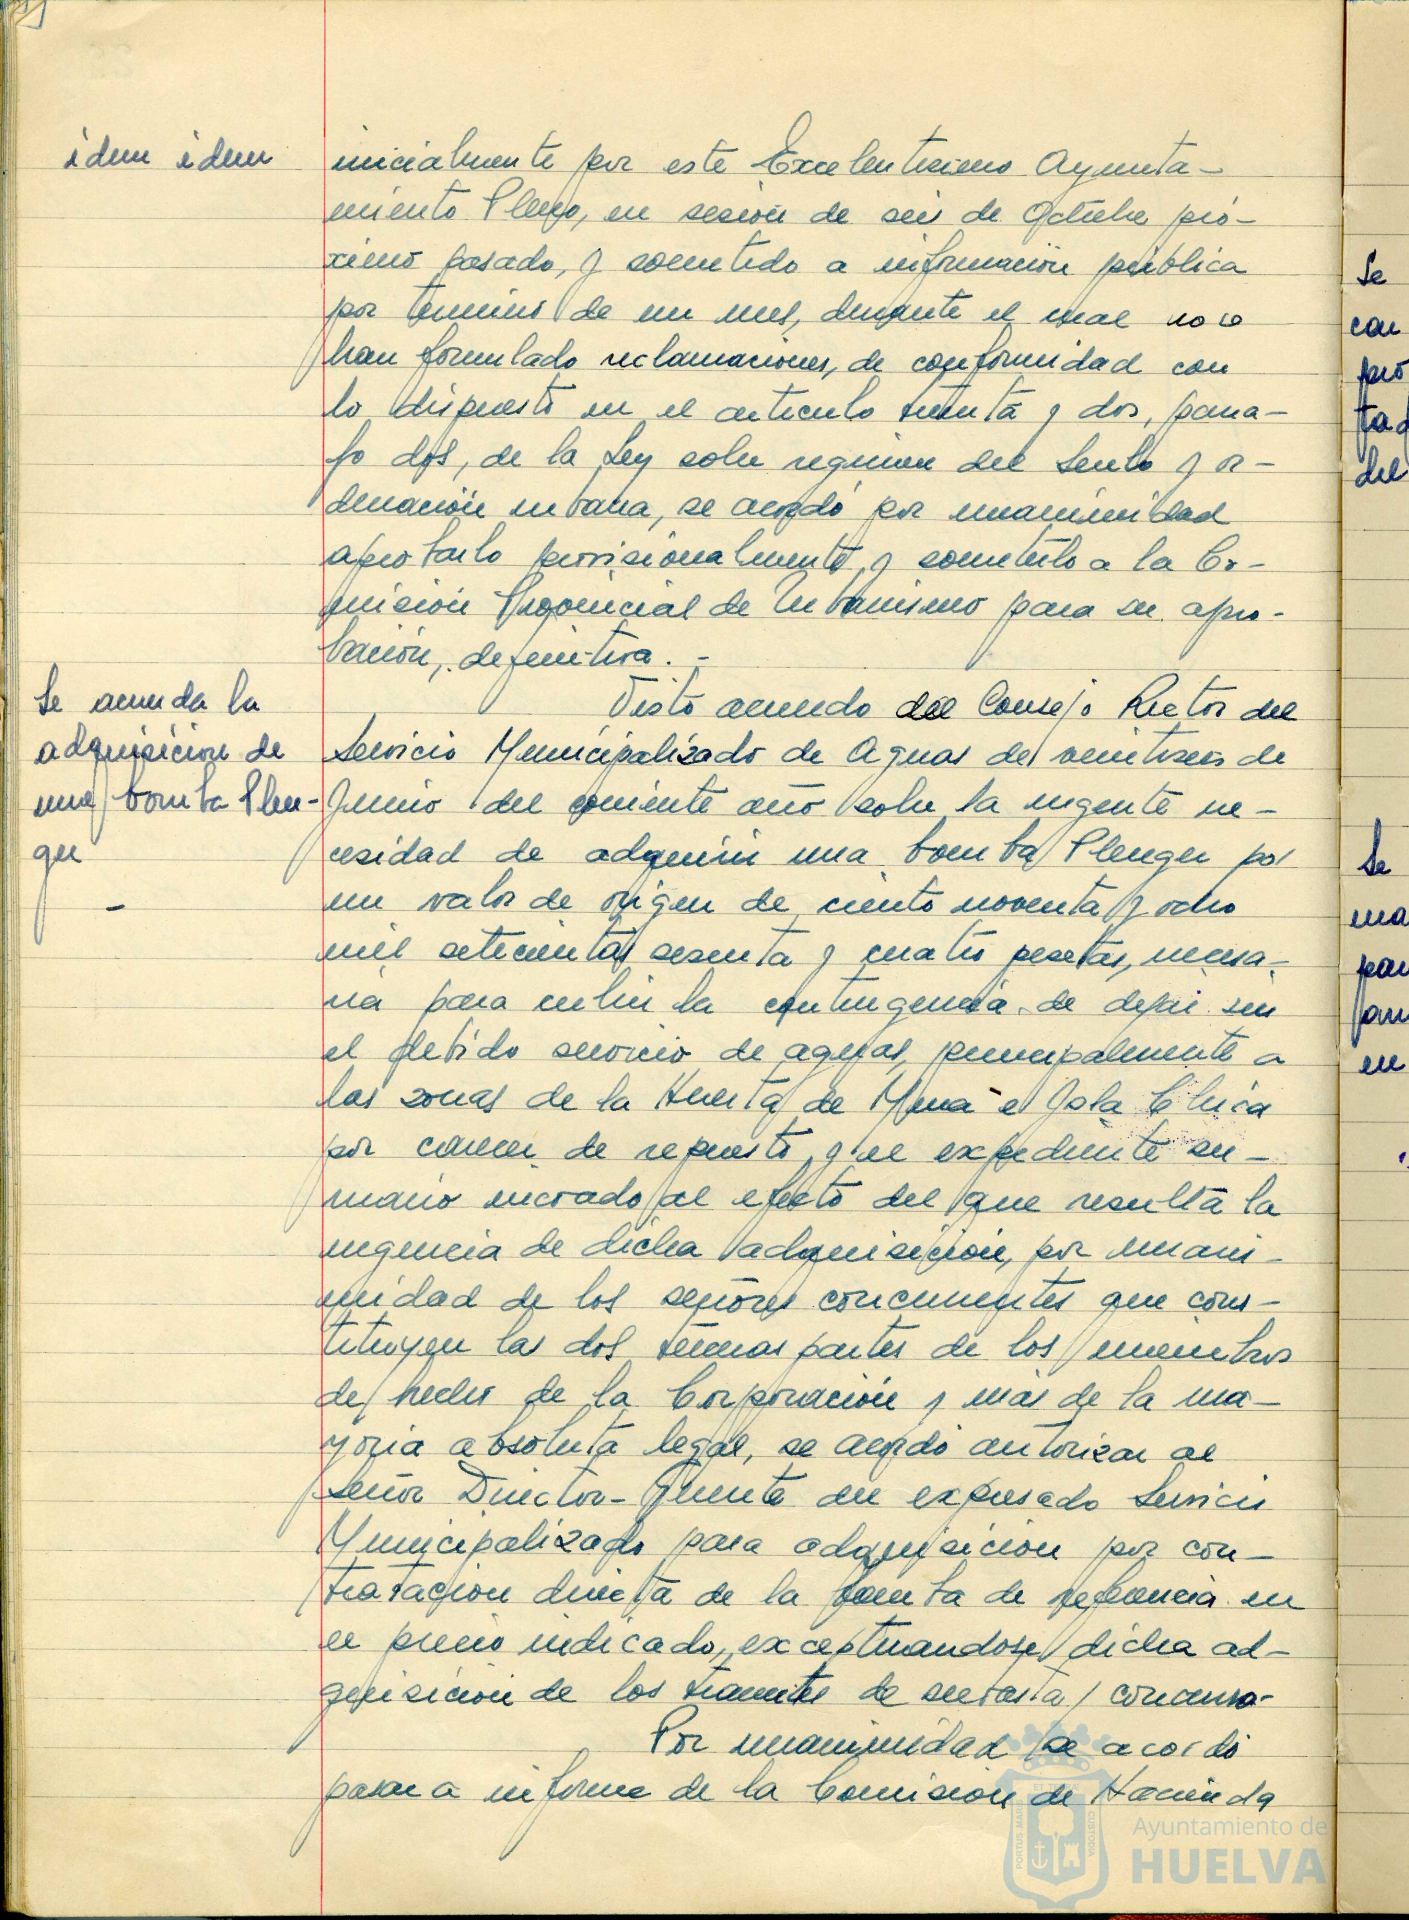 idem idem
inicialmente por este Excelentisimo Ayunta-
miento Pleno, en sesión de seis de Octubre pró-
ximo pasado, y sometido a información pública
por termino de un mes, durante el cual no se
han formulado reclamaciones, de conformidad con
lo dispuesto en el articulo treinta y dos, parra-
fo dos, de la Ley sobre regimen del Suelo y or-
denación urbana, se acordó por unanimidad
aprobarlo provisionalmente y someterlo a la Co-
misión Provincial de Urbanismo para su apro-
bación, definitiva. -
Se acuerda la
adquisicion de
una bomba Pleu-
ger
-
Visto acuerdo del Consejo Rector del
Servicio Municipalizado de Aguas de veintiseis de
Junio del corriente año sobre la urgente ne-
cesidad de adquirir una bomba Pleuger por
un valor de origen de ciento noventa y ocho
mil setecientas sesenta y cuatro pesetas, necesa-
ria para cubrir la contingencia de dejar sin
el debido servicio de aguas, principalmente a
las zonas de la Huerta de Mena e Isla Chica
por carecer de repuesto, y el expediente su-
mario incoado al efecto del que resulta la
urgencia de dicha adquisición, por unani-
midad de los señores concurrentes que cons-
tituyen las dos terceras partes de los miembros
de hecho de la Corporación y más de la ma-
yoria absoluta legal, se acordó autorizar al
señor Director-Gerente del expresado Servicio
Municipalizado para adquisicion por con-
tratacion directa de la bomba de referencia en
el precio indicado, exceptuandose dicha ad-
quisición de los tramites de subasta / concurso-
Por unanimidad se acordó
pasar a informe de la Comisión de Hacienda
Se
con
pro
tad
del
Se
ma
par
en
Ayuntamiento de
HUELVA
PORTUS MARIS
CUSTODIA